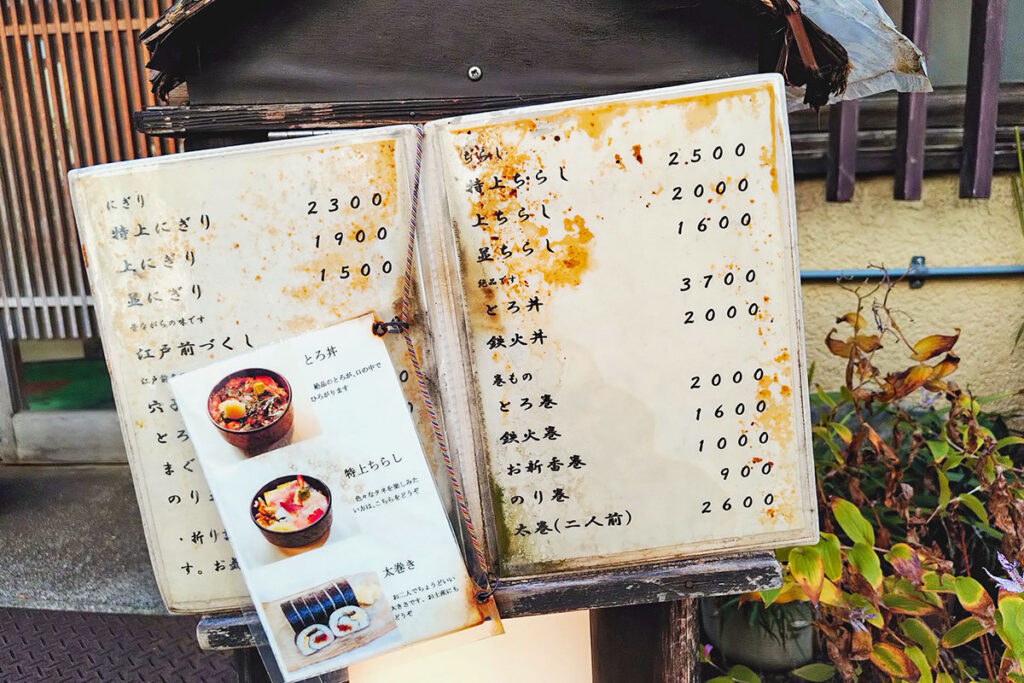 にぎり
特上にぎり 2300
上にぎり 1900
並にぎり 1500
昔ながらの味です
江戸前づくし
江戸前
穴子
とろ
まぐ
のり
・折り
す。お
ちらし
特上ちらし 2500
上ちらし 2000
並ちらし 1600
絶品です
とろ丼 3700
鉄火丼 2000
巻もの
とろ巻 2000
鉄火巻 1600
お新香巻 1000
のり巻 900
太巻(二人前) 2600
とろ丼
絶品のとろが、口の中で
ひろがります
特上ちらし
色々なタネを楽しみた
い方は、こちらをどうぞ
太巻き
お二人でちょうどいい
大きさです、お土産にも
どうぞ